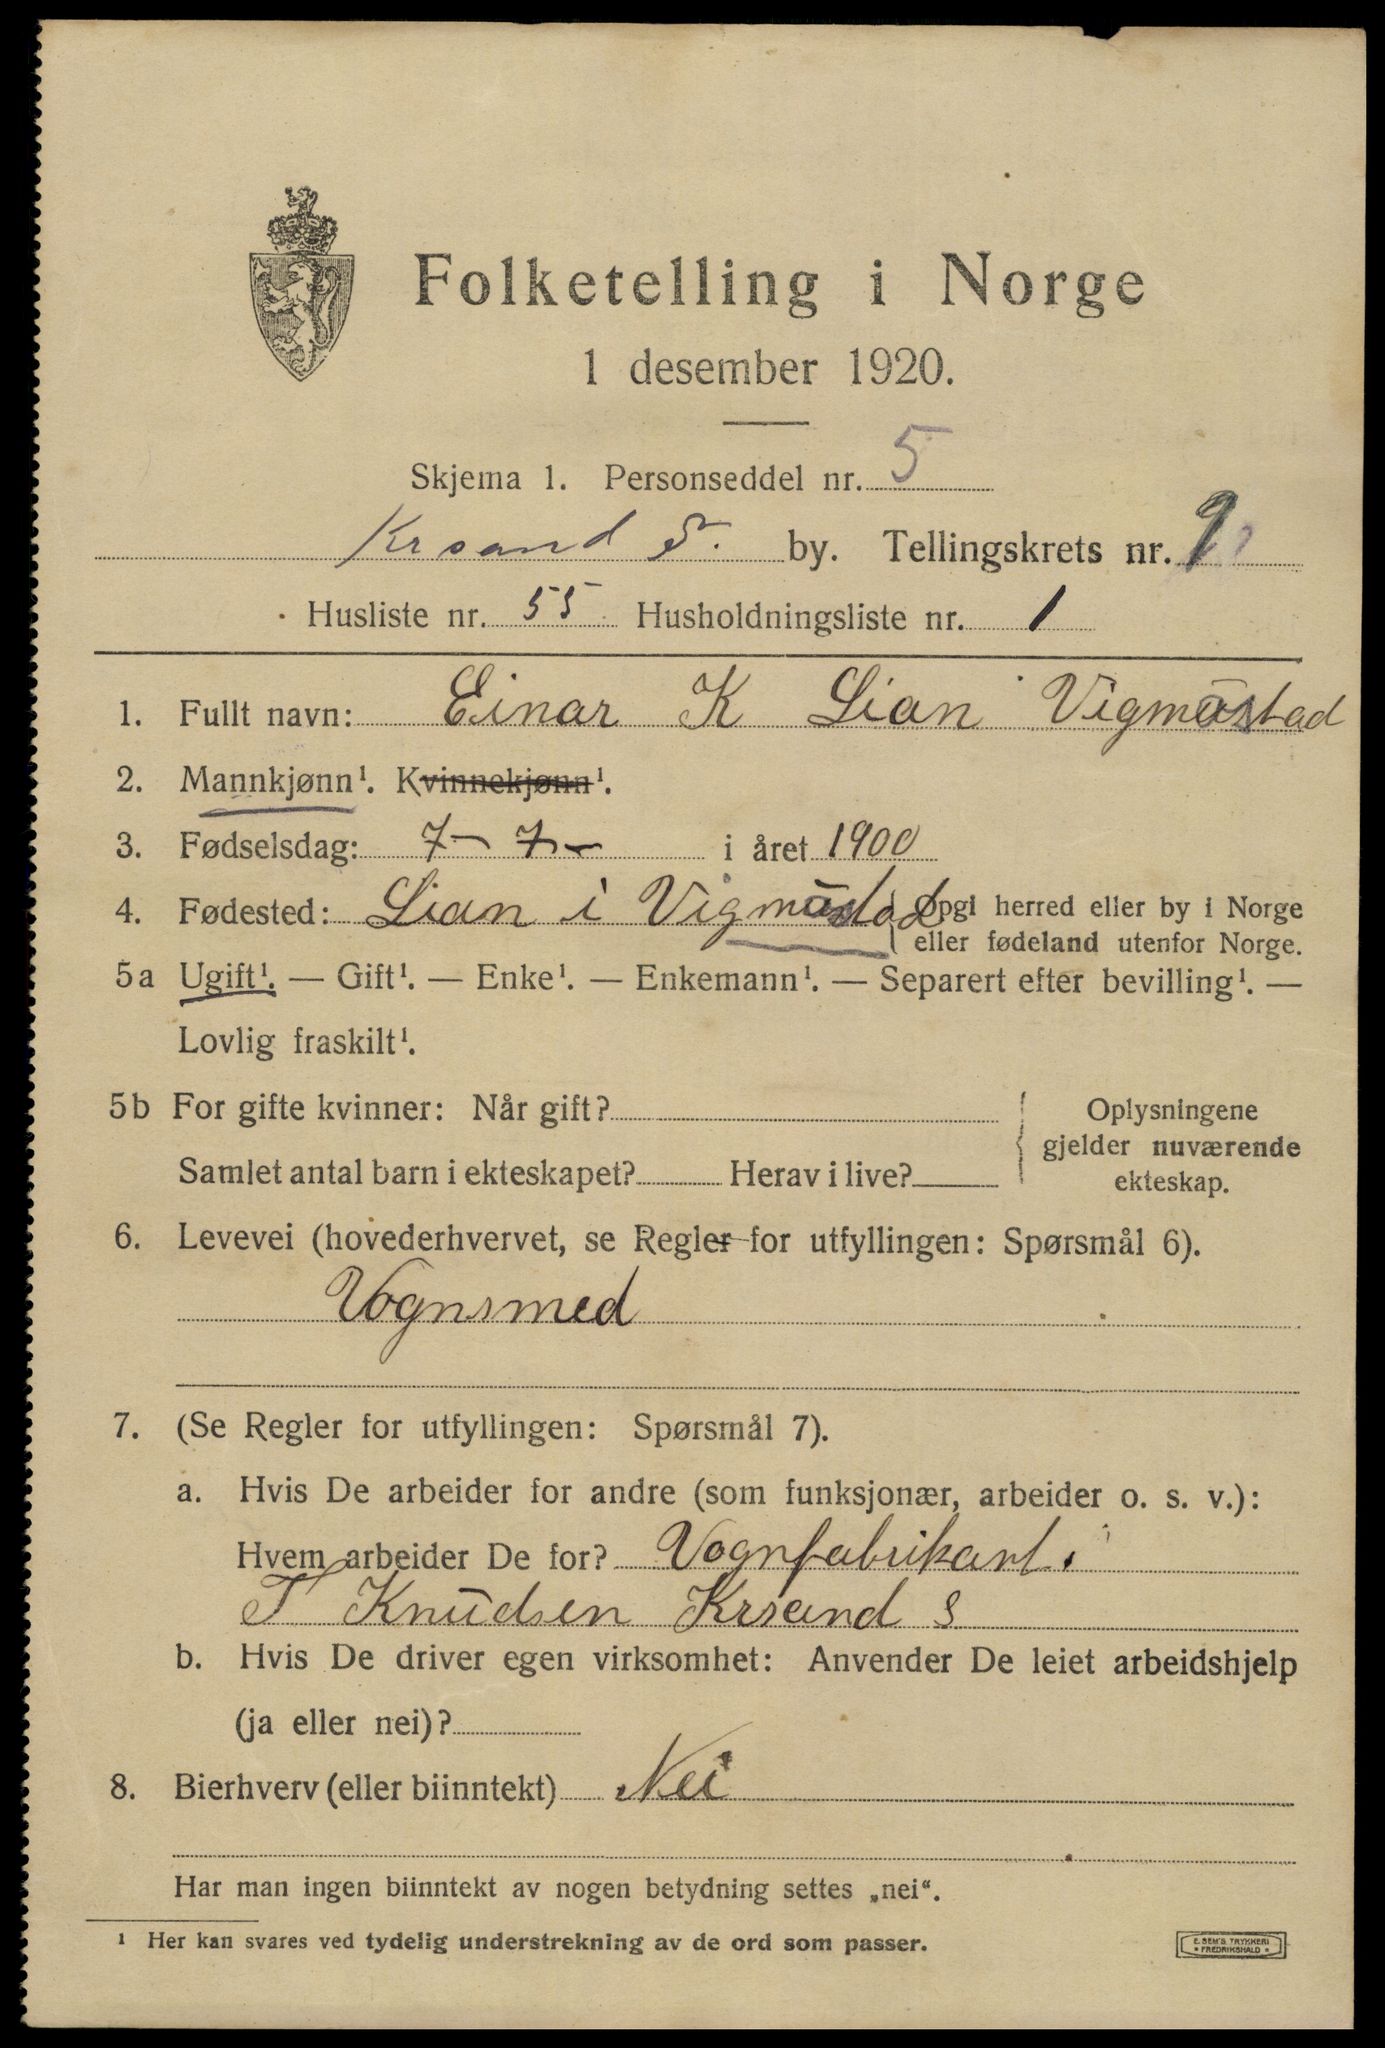 Folketelling i Norge
1 desember 1920.
Skjema 1. Personseddel nr. 5
Krsand S. by. Tellingskrets nr. 9
Husliste nr. 55 Husholdningsliste nr. 1
1. Fullt navn: Einar K Lian Vigmostad
2. Mannkjønn¹. Kvinnekjønn¹.
3. Fødselsdag: 7 - 7 - i året 1900
4. Fødested: Lian i Vigmostad Opgi herred eller by i Norge
eller fødeland utenfor Norge.
5a Ugift¹. — Gift¹. — Enke¹. — Enkemann¹. — Separert efter bevilling¹. —
Lovlig fraskilt¹.
5b For gifte kvinner: Når gift? Oplysningene
gjelder nuværende
Samlet antal barn i ekteskapet? Herav i live? ekteskap.
6. Levevei (hovederhvervet, se Regler for utfyllingen: Spørsmål 6).
Vognsmed
7. (Se Regler for utfyllingen: Spørsmål 7).
a. Hvis De arbeider for andre (som funksjonær, arbeider o. s. v.):
Hvem arbeider De for? Vognfabrikant.
T Knudsen Krsand S
b. Hvis De driver egen virksomhet: Anvender De leiet arbeidshjelp
(ja eller nei)?
8. Bierhverv (eller biinntekt) Nei
Har man ingen biinntekt av nogen betydning settes „nei“.
¹ Her kan svares ved tydelig understrekning av de ord som passer.
E. SEM'S TRYKKERI
* FREDRIKSHALD *